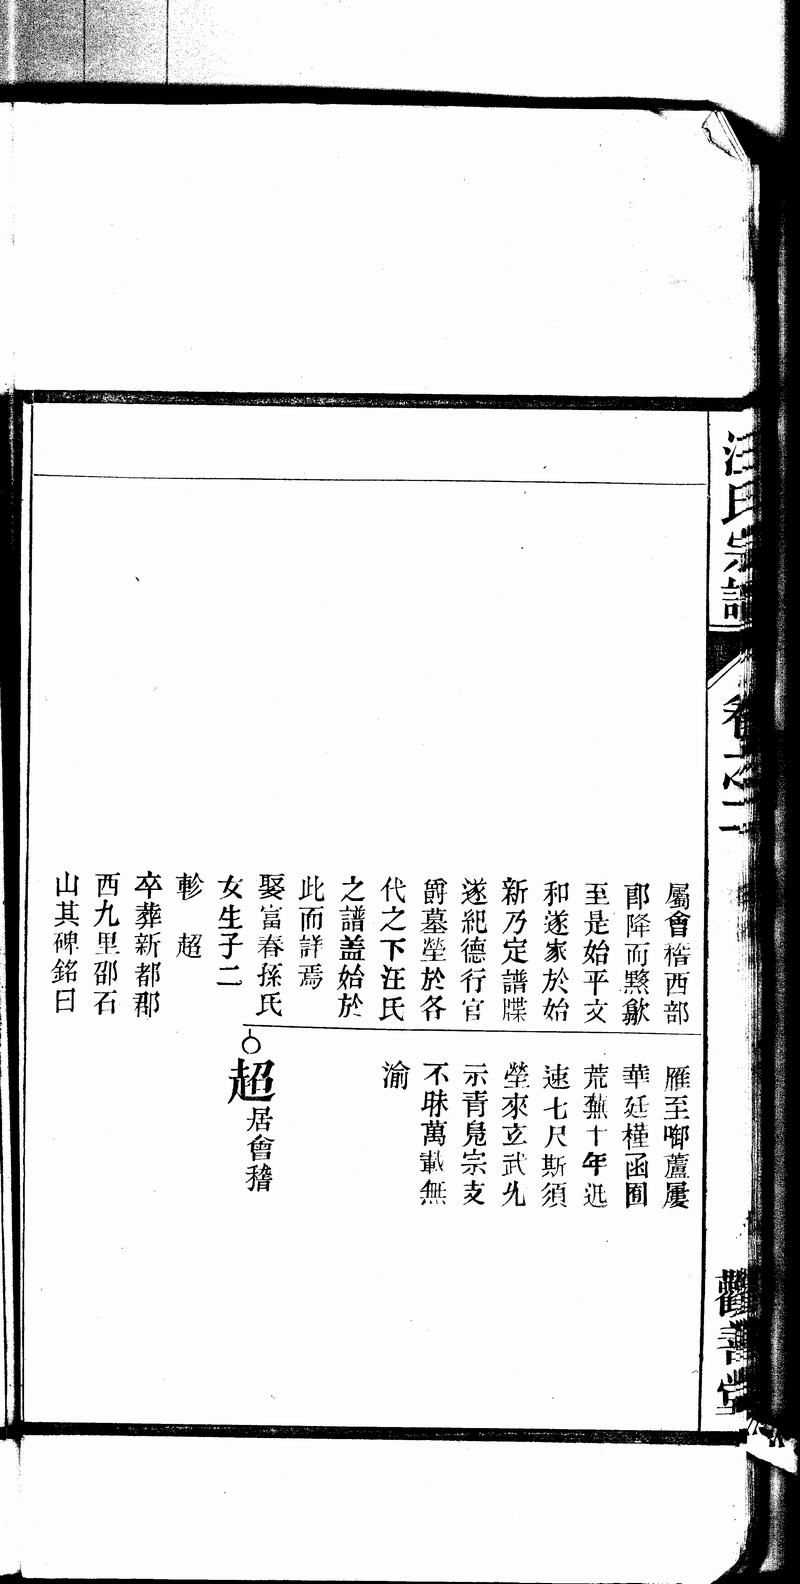 汪氏宗譜
卷之二
觀善堂
屬會稽西部
郡降而黟歙
至是始平文
和遂家於始
新乃定譜牒
遂紀德行官
爵墓塋於各
代之下汪氏
之譜蓋始於
此而詳焉
娶富春孫氏
女生子二
軫 超
卒葬新都郡
西九里邵石
山其碑銘曰
雁至啣蘆屢
華廷槿函圃
荒蕪十年迅
速七尺斯須
塋來玄武允
示青凫宗支
不昧萬載無
渝
超
居會稽